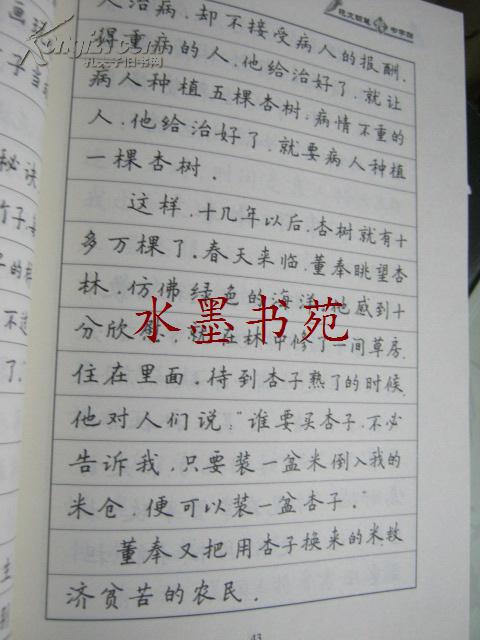 人治病,却不接受病人的报酬.
得重病的人,他给治好了,就让
病人种植五棵杏树;病情不重的
人,他给治好了,就要病人种植
一棵杏树.
这样,十几年以后,杏树就有十
多万棵了.春天来临,董奉眺望杏
林,仿佛绿色的海洋.他感到十
分欣,在林中修了一间草房,
住在里面,待到杏子熟了的时候,
他对人们说:“谁要买杏子,不必
告诉我,只要装一盆米倒入我的
米仓,便可以装一盆杏子.
董奉又把用杏子换来的米,救
济贫苦的农民.
43
水墨书苑
孔夫子旧书网
画
秘诀
竹子
子的
不
了.
主
别